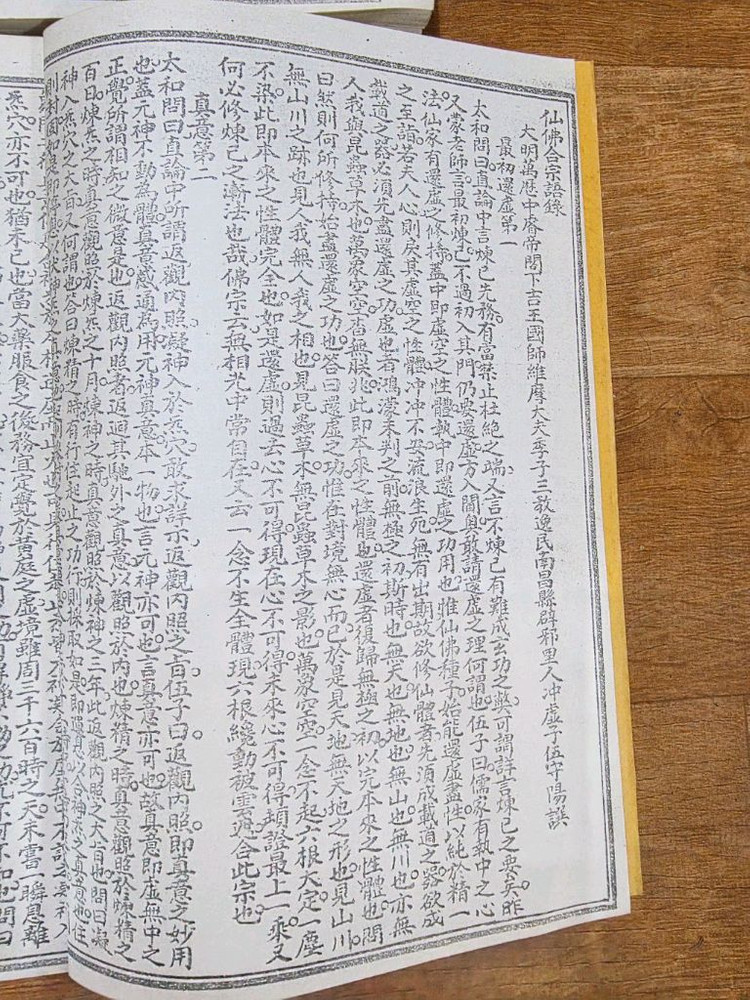 仙佛合宗語錄
大明萬歷中睿帝閣下吉王國師維摩大夫季子三教逸民南昌縣辟邪里人冲虛子伍守陽譔
最初還虛第一
太和問曰直論中言煉己先務有當禁止杜絕之端又言不煉己有難成玄功之弊可謂詳言煉己之要矣昨
又蒙老師言最初煉己不過初入其門仍要還虛方入閫奧敢請還虛之理何謂也伍子曰儒家有執中之心
法仙家有還虛之修持蓋中即虛空之性體執中即還虛之功用也惟仙佛種子始能還虛盡性以純於精一
之至詣若夫人心則失其虛空之性體冲冲不安流浪生死無有出期故欲修仙體者先須成載道之器欲成
載道之器必須先盡還虛之功虛也者鴻濛未判之前無極之初斯時也無天也無地也無山也無川也亦無
人我與昆蟲草木也萬象空空杳無朕兆此即本來之性體也還虛者復歸無極之初以完本來之性體也問
曰然則何所修持始盡還虛之功也答曰還虛之功惟在對境無心而已於是見天地無天地之形也見山川
無山川之跡也見人我無人我之相也見昆蟲草木無昆蟲草木之影也萬象空空一念不起六根大定一塵
不染此即本來之性體完全也如是還虛則過去心不可得現在心不可得未來心不可得頓證最上一乘又
何必修煉己之漸法也哉佛宗云無相光中常自在又云一念不生全體現六根纔動被雲遮合此宗也
真意第二
太和問曰直論中所謂返觀內照凝神入於炁穴敢求詳示返觀內照之旨伍子曰返觀內照即真意之妙用
也蓋元神不動為體真意感通為用元神真意本一物也言元神亦可也言真意亦可也故真意即虛無中之
正覺所謂相知之微意是也返觀內照者返迴其馳外之真意以觀照於內也煉精之時真意觀照於煉精之
百日煉炁之時真意觀照於煉炁之十月煉神之時真意觀照於煉神之三年此返觀內照之大旨也問曰凝
神入炁穴之大旨又何謂也答曰煉精之時有行住起止之功行則採取
炁穴亦不可也猶未已也當大藥服食之後務宜定覺於黃庭之虛境雖周三千六百時之天未嘗一瞬息離